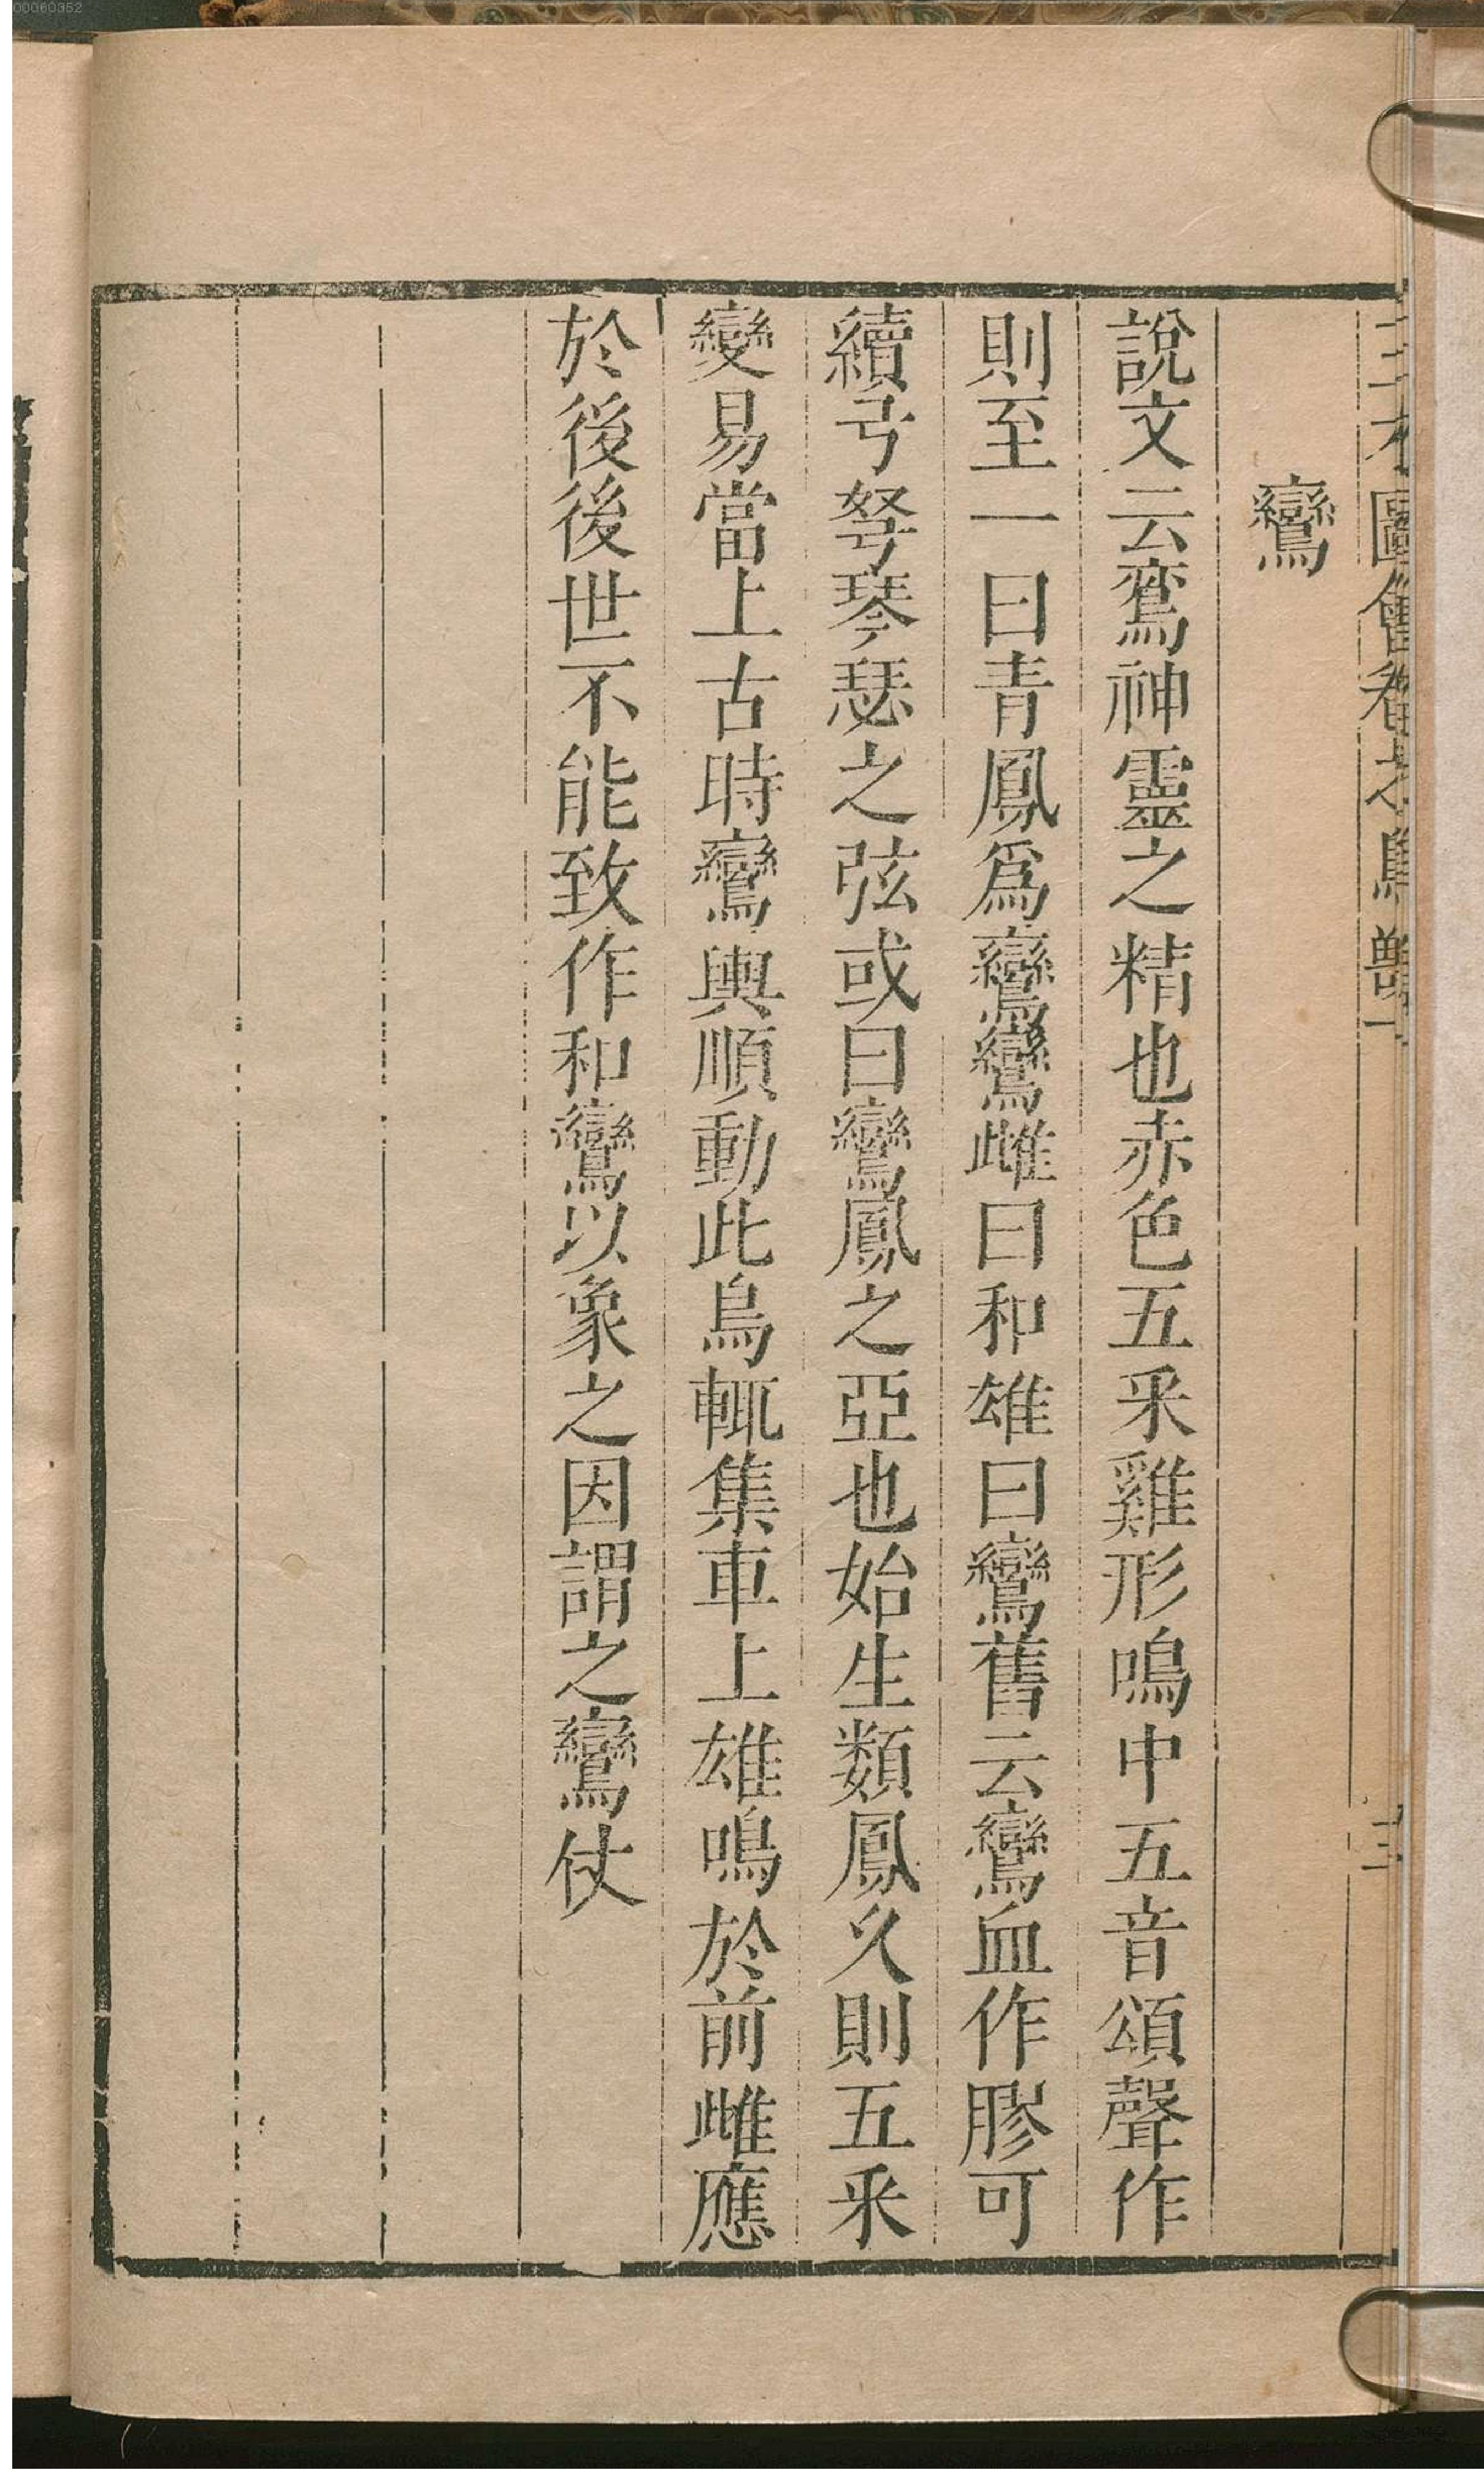 00060352
三才圖會卷之鳥獸一
鸞
說文云鵉神靈之精也赤色五釆雞形鳴中五音頌聲作
則至一曰青鳳爲鸞鸞雌曰和雄曰鸞舊云鸞血作膠可
續弓弩琴瑟之弦或曰鸞鳳之亞也始生類鳳久則五釆
變易當上古時鸞輿順動此鳥輒集車上雄鳴於前雌應
於後後世不能致作和鸞以象之因謂之鸞仗